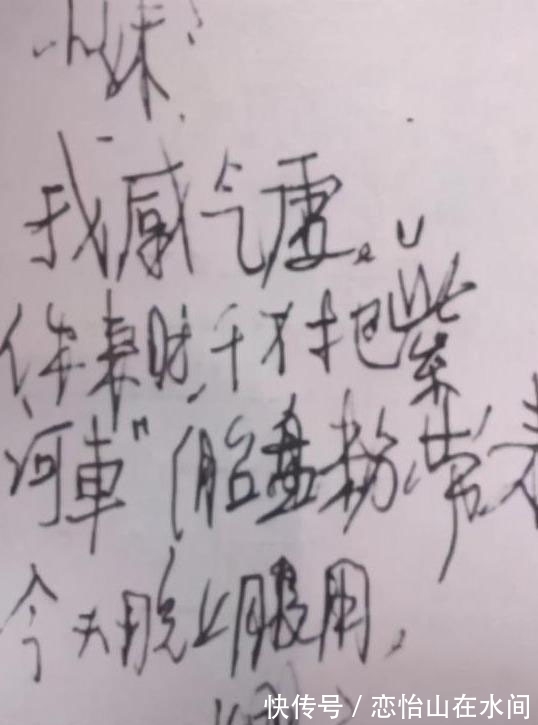 小妹:
我感气虚。"
你来时,千万把紫
河車"(胎盘粉带来
今天晚上服用,
快传号/恋怡山在水间